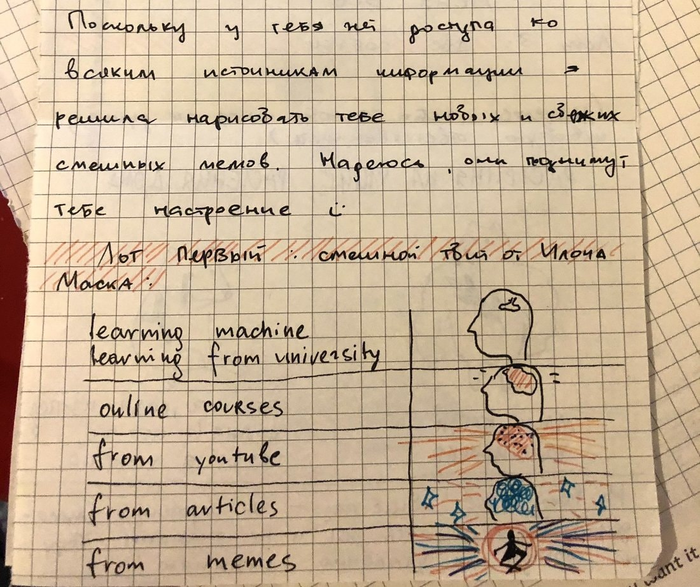 Поскольку у тебя нет доступа ко
всяким источникам информации -
решила нарисовать тебе новых и свежих
смешных мемов. Надеюсь, они поднимут
тебе настроение :)
Лот первый: смешной твит от Илона
Маска:
learning machine
learning from university
online courses
from youtube
from articles
from memes
want it